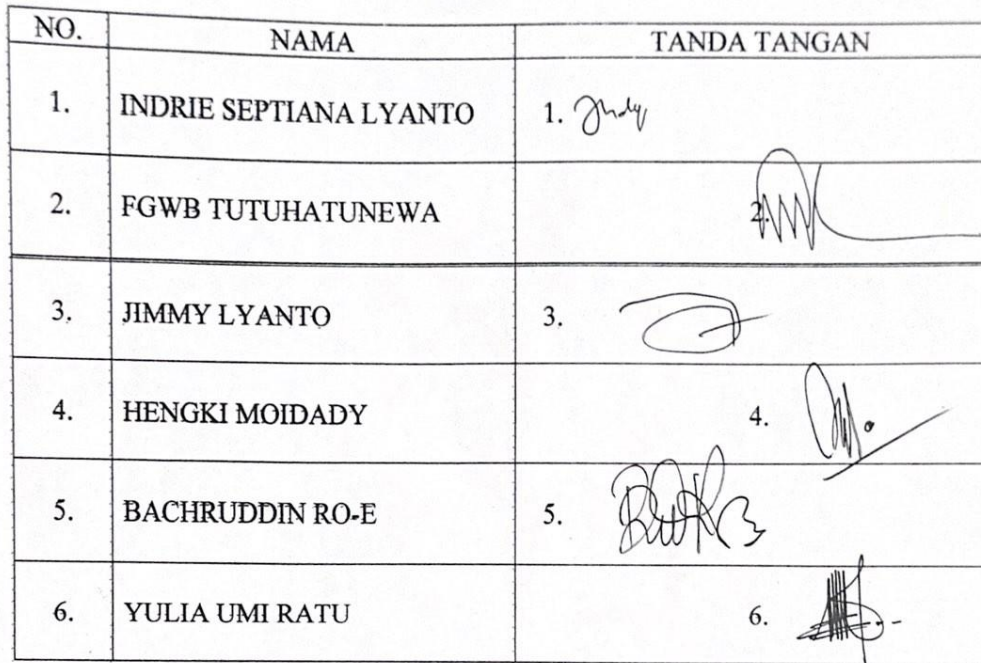 NO. NAMA TANDA TANGAN
1. INDRIE SEPTIANA LYANTO 1.
2. FGWB TUTUHATUNEWA 2.
3. JIMMY LYANTO 3.
4. HENGKI MOIDADY 4.
5. BACHRUDDIN RO-E 5.
6. YULIA UMI RATU 6.